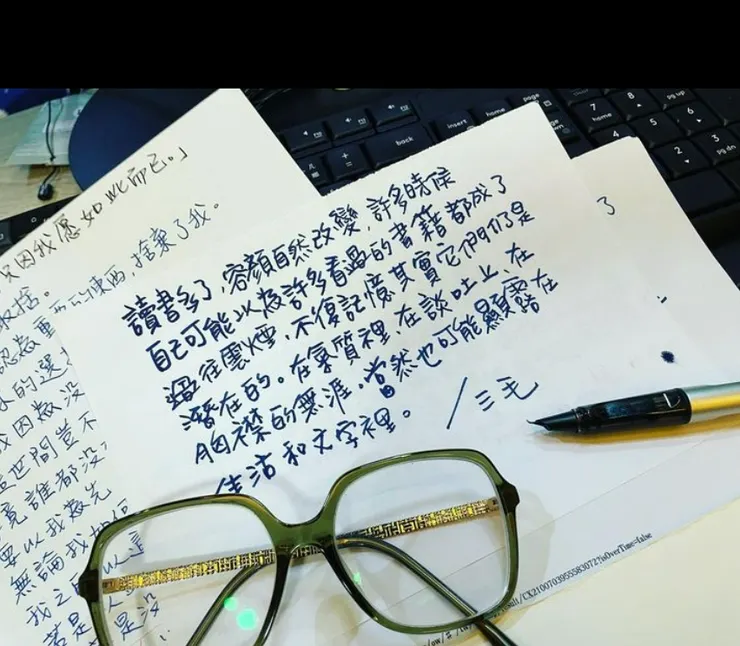 讀書多了,容顏自然改變,許多時候
自己可能以為許多看過的書籍都成了
過往雲煙,不復記憶其實它們仍是
潛在的。在氣質裡,在談吐上、在
胸襟的無涯,當然也可能顯露在
生活和文字裡。 /三毛
只因我愿如此而已。」
捨棄了我。
取捨。
我因為沒
這世間豈不
竟誰都沒
要以我為先
無論我如何
若是 是沒
了
home
page
insert
back
home
pg up
pg dn
7
8
9
4
5
6
2
3
/CX2100703955583072?isOverTime=false